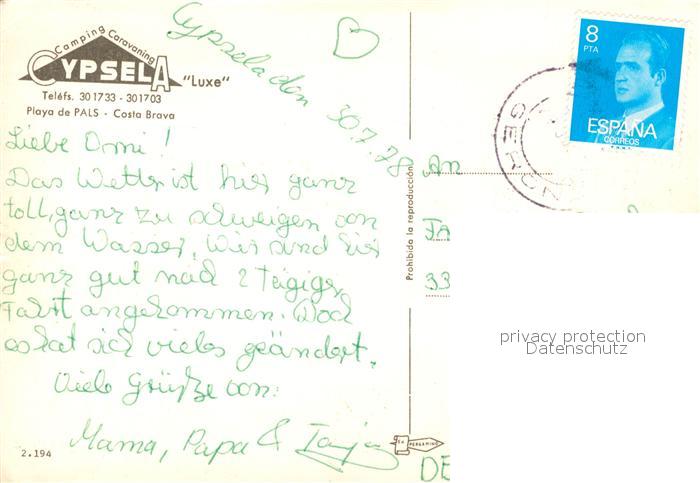 Camping Caravaning
CYPSELA "Luxe"
Teléfs. 301733 - 301703
Playa de PALS - Costa Brava
Cypsela den 30.7.78
Liebe Omi!
Das Wetter ist hier ganz
toll, ganz zu schweigen von
dem Wasser. Wir sind hier
ganz gut nach 2 tägiger
Fahrt angekommen. Doch
es hat sich vieles geändert.
Viele Grüße von:
Mama, Papa & Tanja
2.194
Prohibida la reproducción
PERGAMINO
8
PTA
ESPAÑA
CORREOS
GERON
An
33
DE
privacy protection
Datenschutz